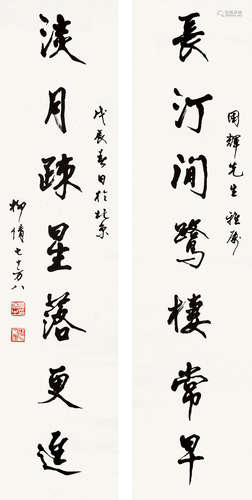 長汀閒鷺棲常早
國輝先生雅屬
淡月疎星落更遲
戊辰春日於北京
柳倩七十万八